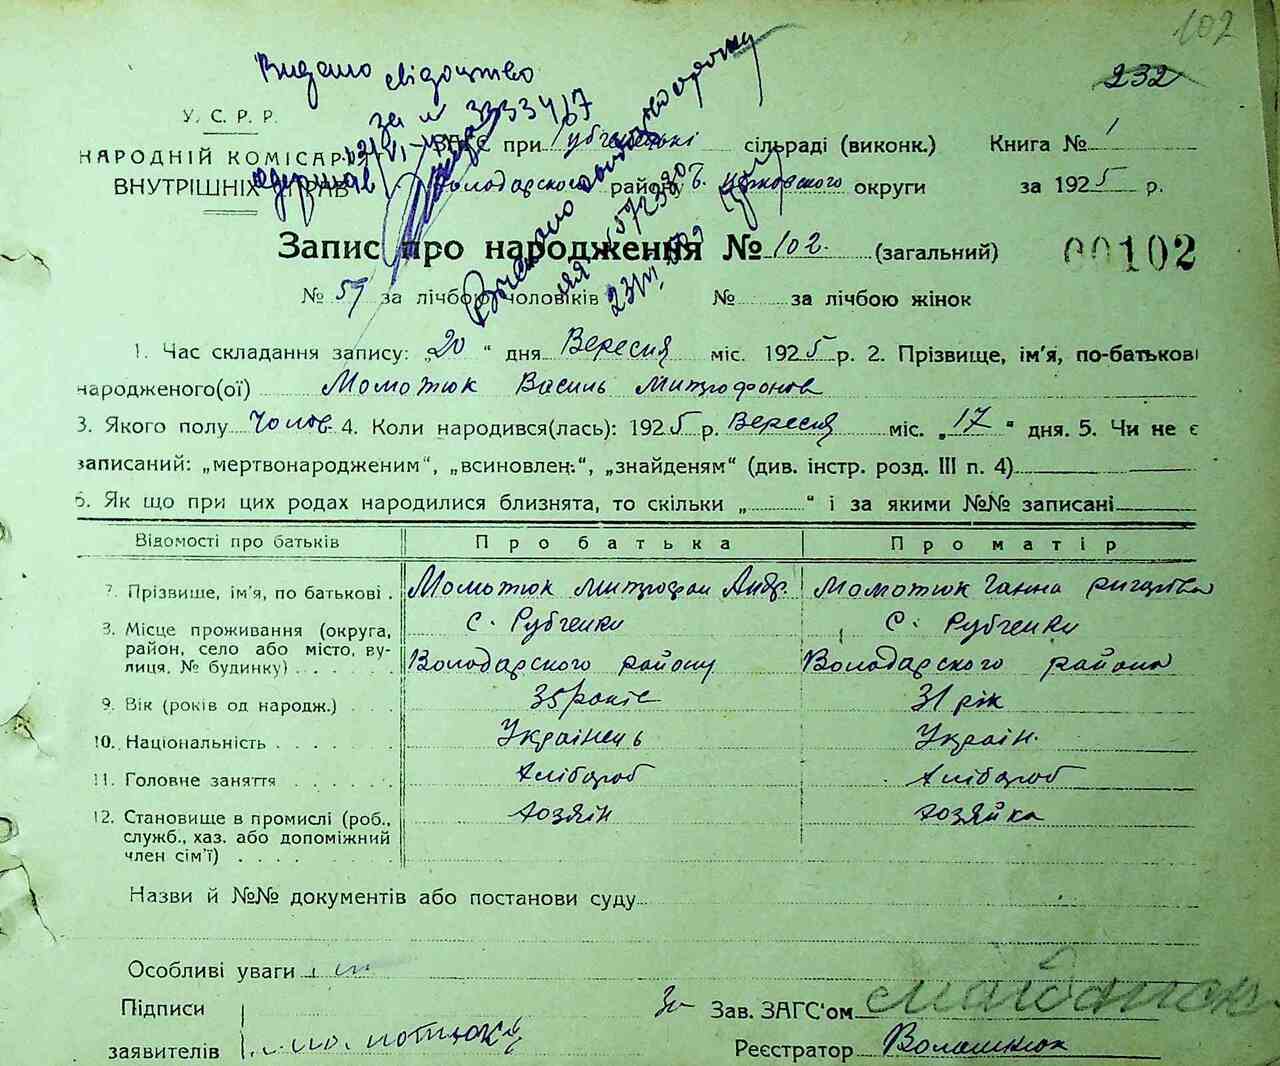 102
232
Видано свідоцтво
за № 3333417
У. С. Р. Р.
НАРОДНІЙ КОМІСАР
ВНУТРІШНІХ СПРАВ
ЗАГС при Рубченській сільраді (виконк.) Книга № 1
Володарского району Б. Церковского округи за 1925 р.
Запис про народження № 102. (загальний) 00102
№ 57 за лічбою чоловіків № за лічбою жінок
1. Час складання запису: „20“ дня Вересня міс. 1925 р. 2. Прізвище, ім'я, по-батькові
народженого(ої) Момотюк Василь Митрофанов
3. Якого полу Чолов. 4. Коли народився(лась): 1925 р. Вересня міс. „17“ дня. 5. Чи не є
записаний: „мертвонародженим“, „всиновлен.“, „знайденям“ (див. інстр. розд. III п. 4)
6. Як що при цих родах народилися близнята, то скільки „ “ і за якими №№ записані
Відомості про батьків Про батька Про матір
7. Прізвище, ім'я, по батькові . Момотюк Митрофан Андр. Момотюк Ганна
8. Місце проживання (округа, с. Рубченки с. Рубченки
район, село або місто, ву-
лиця, № будинку) . . . . Володарского району Володарского района
9. Вік (років од народж.) . . 35 років 31 рік
10. Національність . . . . . . Українець Україн.
11. Головне заняття . . . . . . Хлібороб Хлібороб
12. Становище в промислі (роб., хозяін хозяйка
служб., хаз. або допоміжний
член сім'ї) . . . .
Назви й №№ документів або постанови суду
Особливі уваги
Підписи За Зав. ЗАГС'ом
заявителів Момотюк Реєстратор Волашнюк